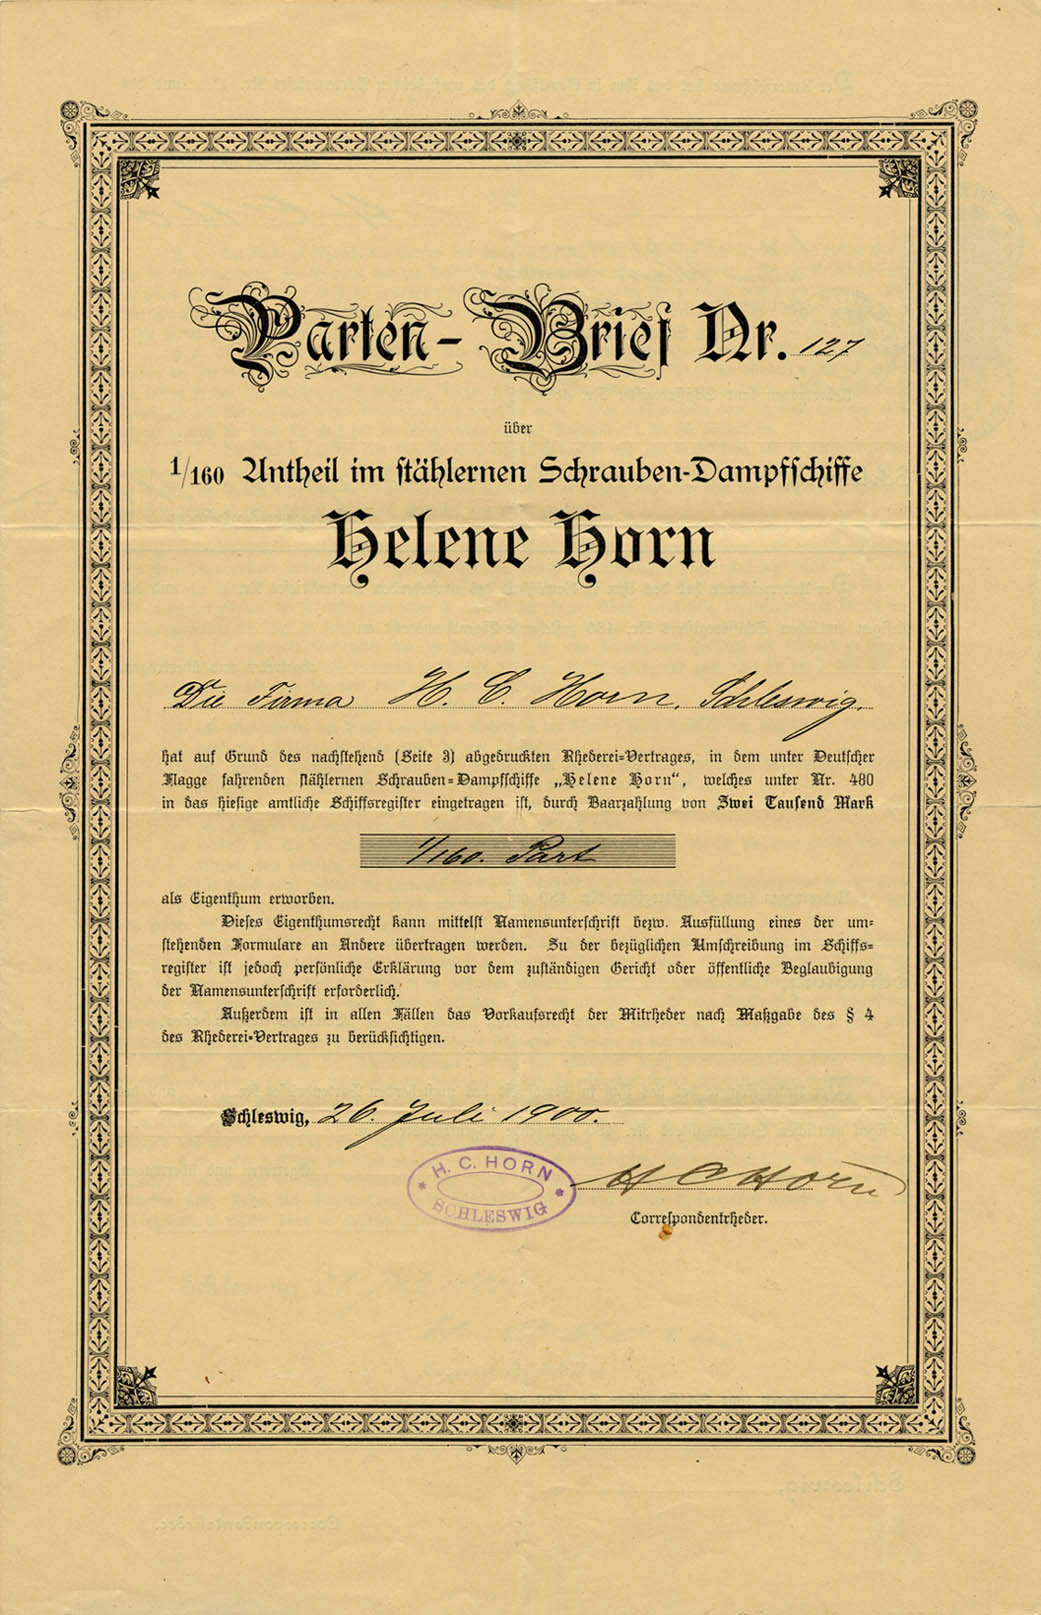 Parten-Brief Nr. 127
über
1/160 Antheil im stählernen Schrauben-Dampfschiffe
Helene Horn
Die Firma H. C. Horn, Schleswig.
hat auf Grund des nachstehend (Seite 3) abgedruckten Rhederei-Vertrages, in dem unter Deutscher
Flagge fahrenden stählernen Schrauben-Dampfschiffe „Helene Horn“, welches unter Nr. 480
in das hiesige amtliche Schiffsregister eingetragen ist, durch Baarzahlung von Zwei Tausend Mark
1/160. Part
als Eigenthum erworben.
Dieses Eigenthumsrecht kann mittelst Namensunterschrift bezw. Ausfüllung eines der um-
stehenden Formulare an Andere übertragen werden. Zu der bezüglichen Umschreibung im Schiffs-
register ist jedoch persönliche Erklärung vor dem zuständigen Gericht oder öffentliche Beglaubigung
der Namensunterschrift erforderlich.
Außerdem ist in allen Fällen das Vorkaufsrecht der Mitrheder nach Maßgabe des § 4
des Rhederei-Vertrages zu berücksichtigen.
Schleswig, 26. Juli 1900.
H. C. HORN
* SCHLESWIG *
H C Horn
Correspondentrheder.